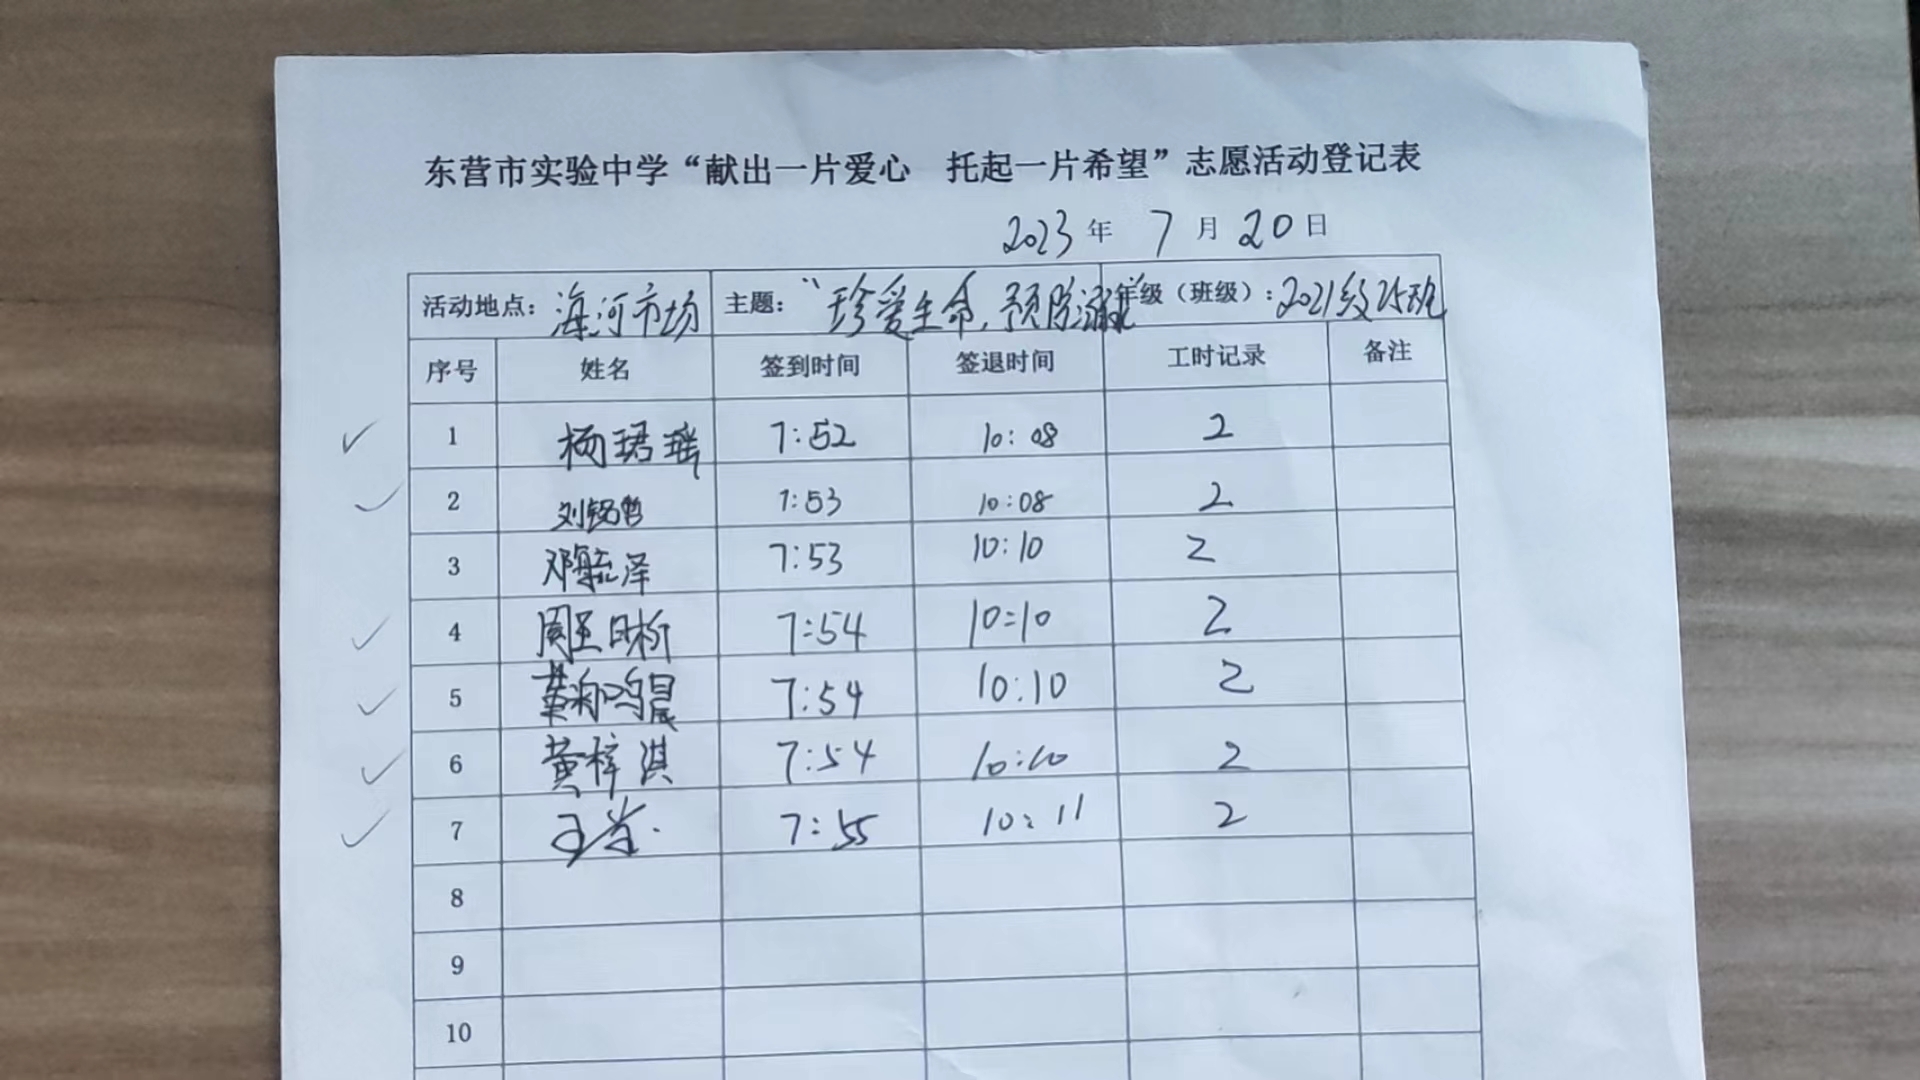 东营市实验中学“献出一片爱心 托起一片希望”志愿活动登记表
2023年 7月20日
活动地点：海河市场 主题：“珍爱生命，预防溺水” 年级（班级）：2021级25班
序号 姓名 签到时间 签退时间 工时记录 备注
1 杨珺瑶 7:52 10:08 2
2 刘铭哲 7:53 10:08 2
3 邓毓泽 7:53 10:10 2
4 周王晰 7:54 10:10 2
5 董润鸣晨 7:54 10:10 2
6 黄梓淇 7:54 10:10 2
7 7:55 10:11 2
8
9
10